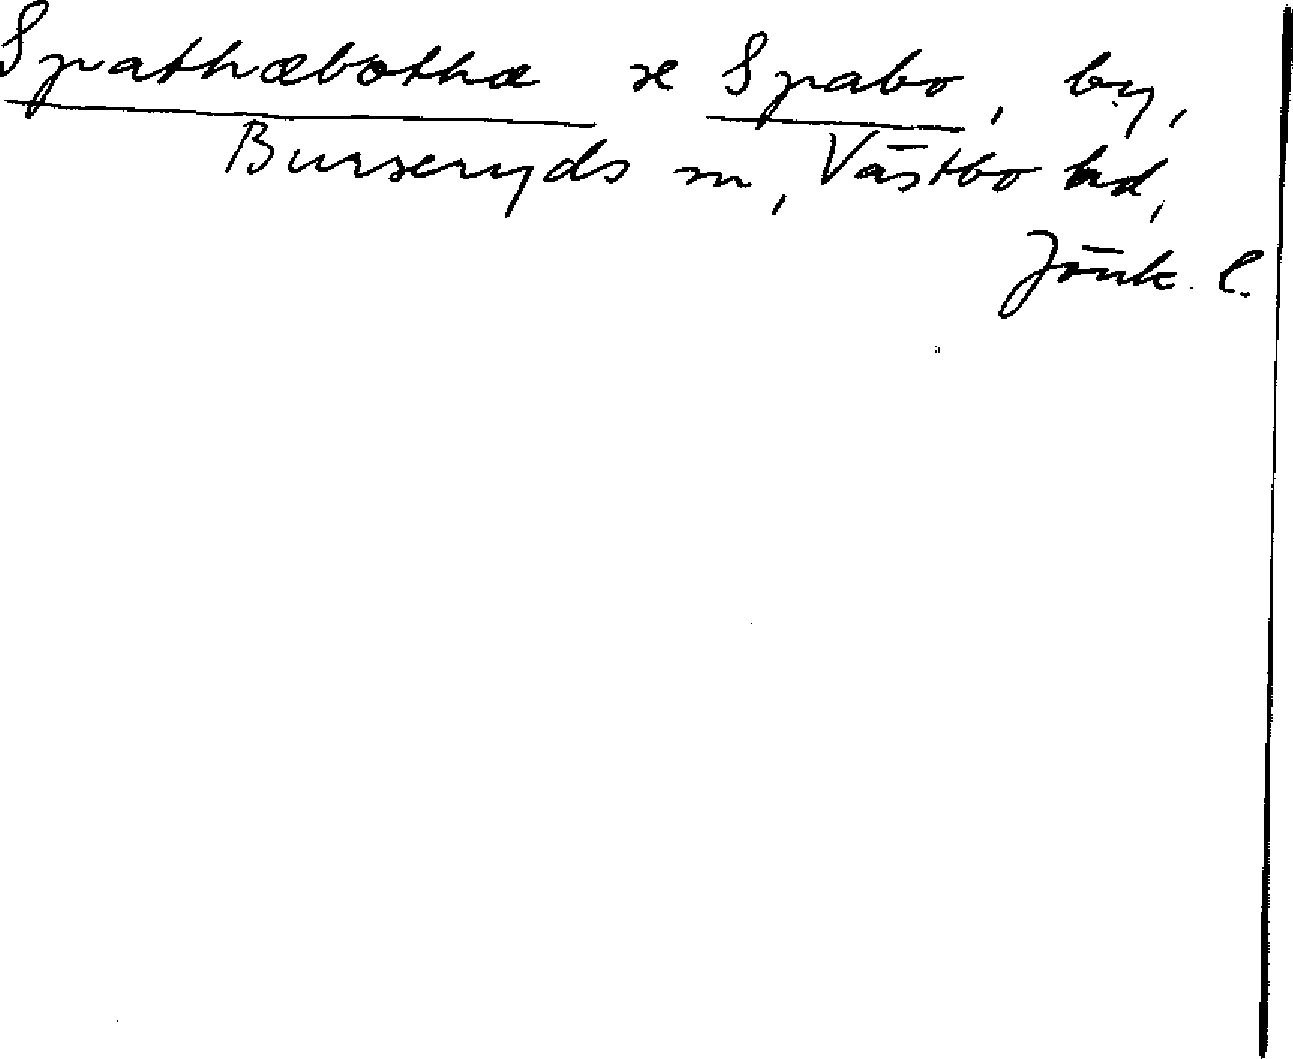 Spathæbothæ se Spabo, by,
Burseryds sn, Västbo hd,
Jönk. l.